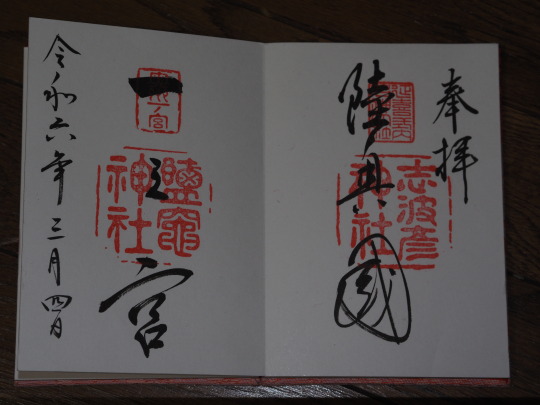 奉拝
陸奥國
志波彦
神社
一之宮
鹽竈
神社
令和六年三月四日